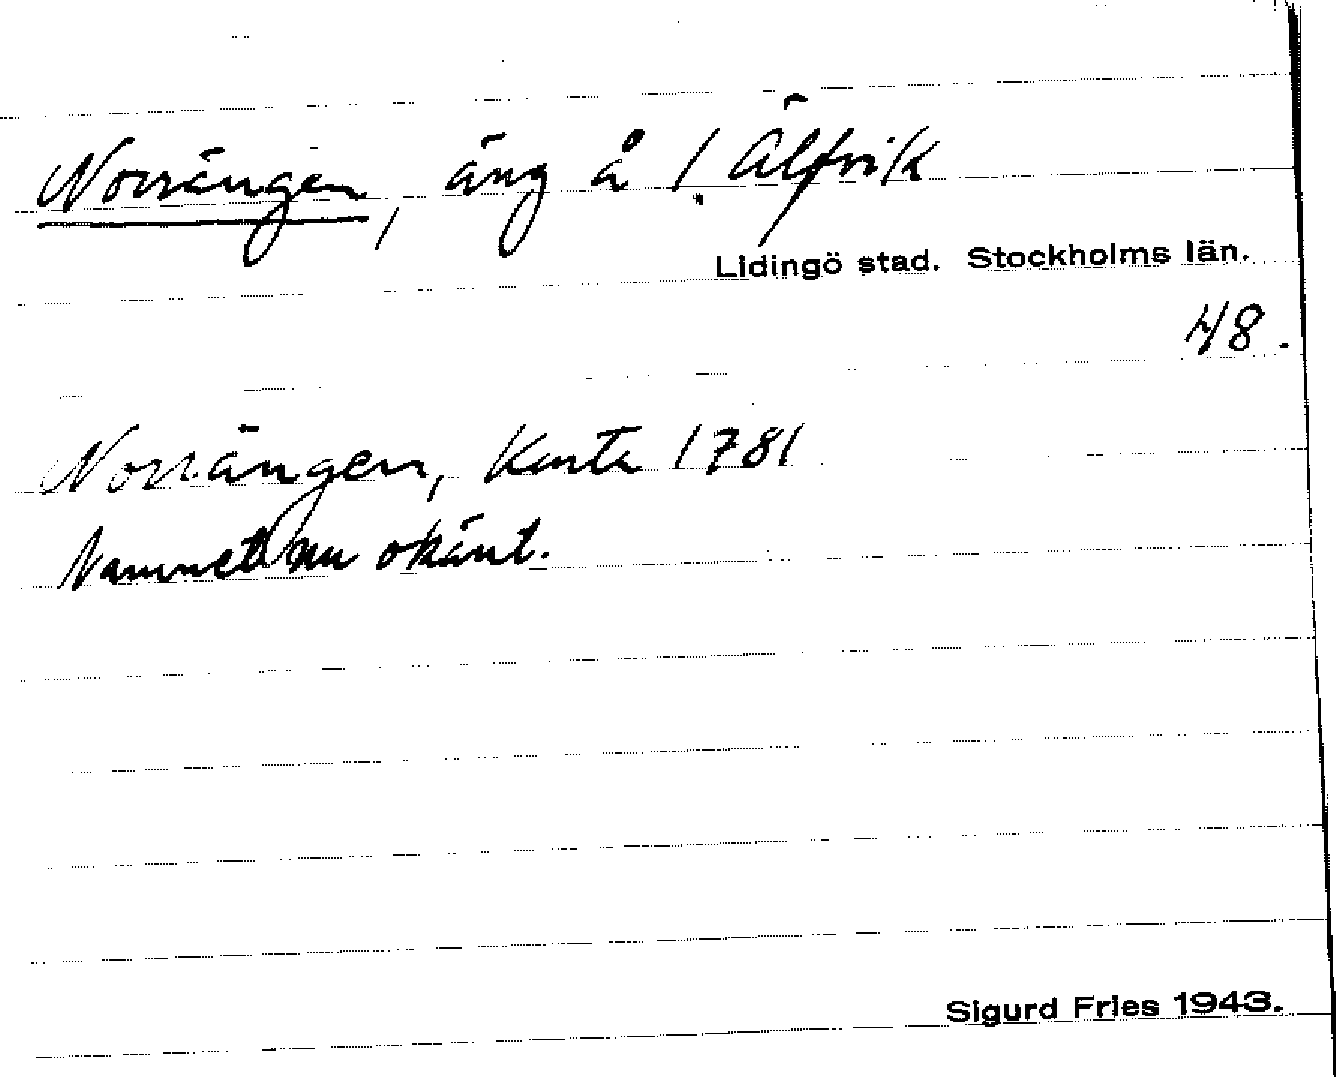 Norrängen, äng å ! Älfvik
Lidingö stad. Stockholms län.
48.
Norrängen, Karta 1781
Namnet nu okänt.
Sigurd Fries 1943.